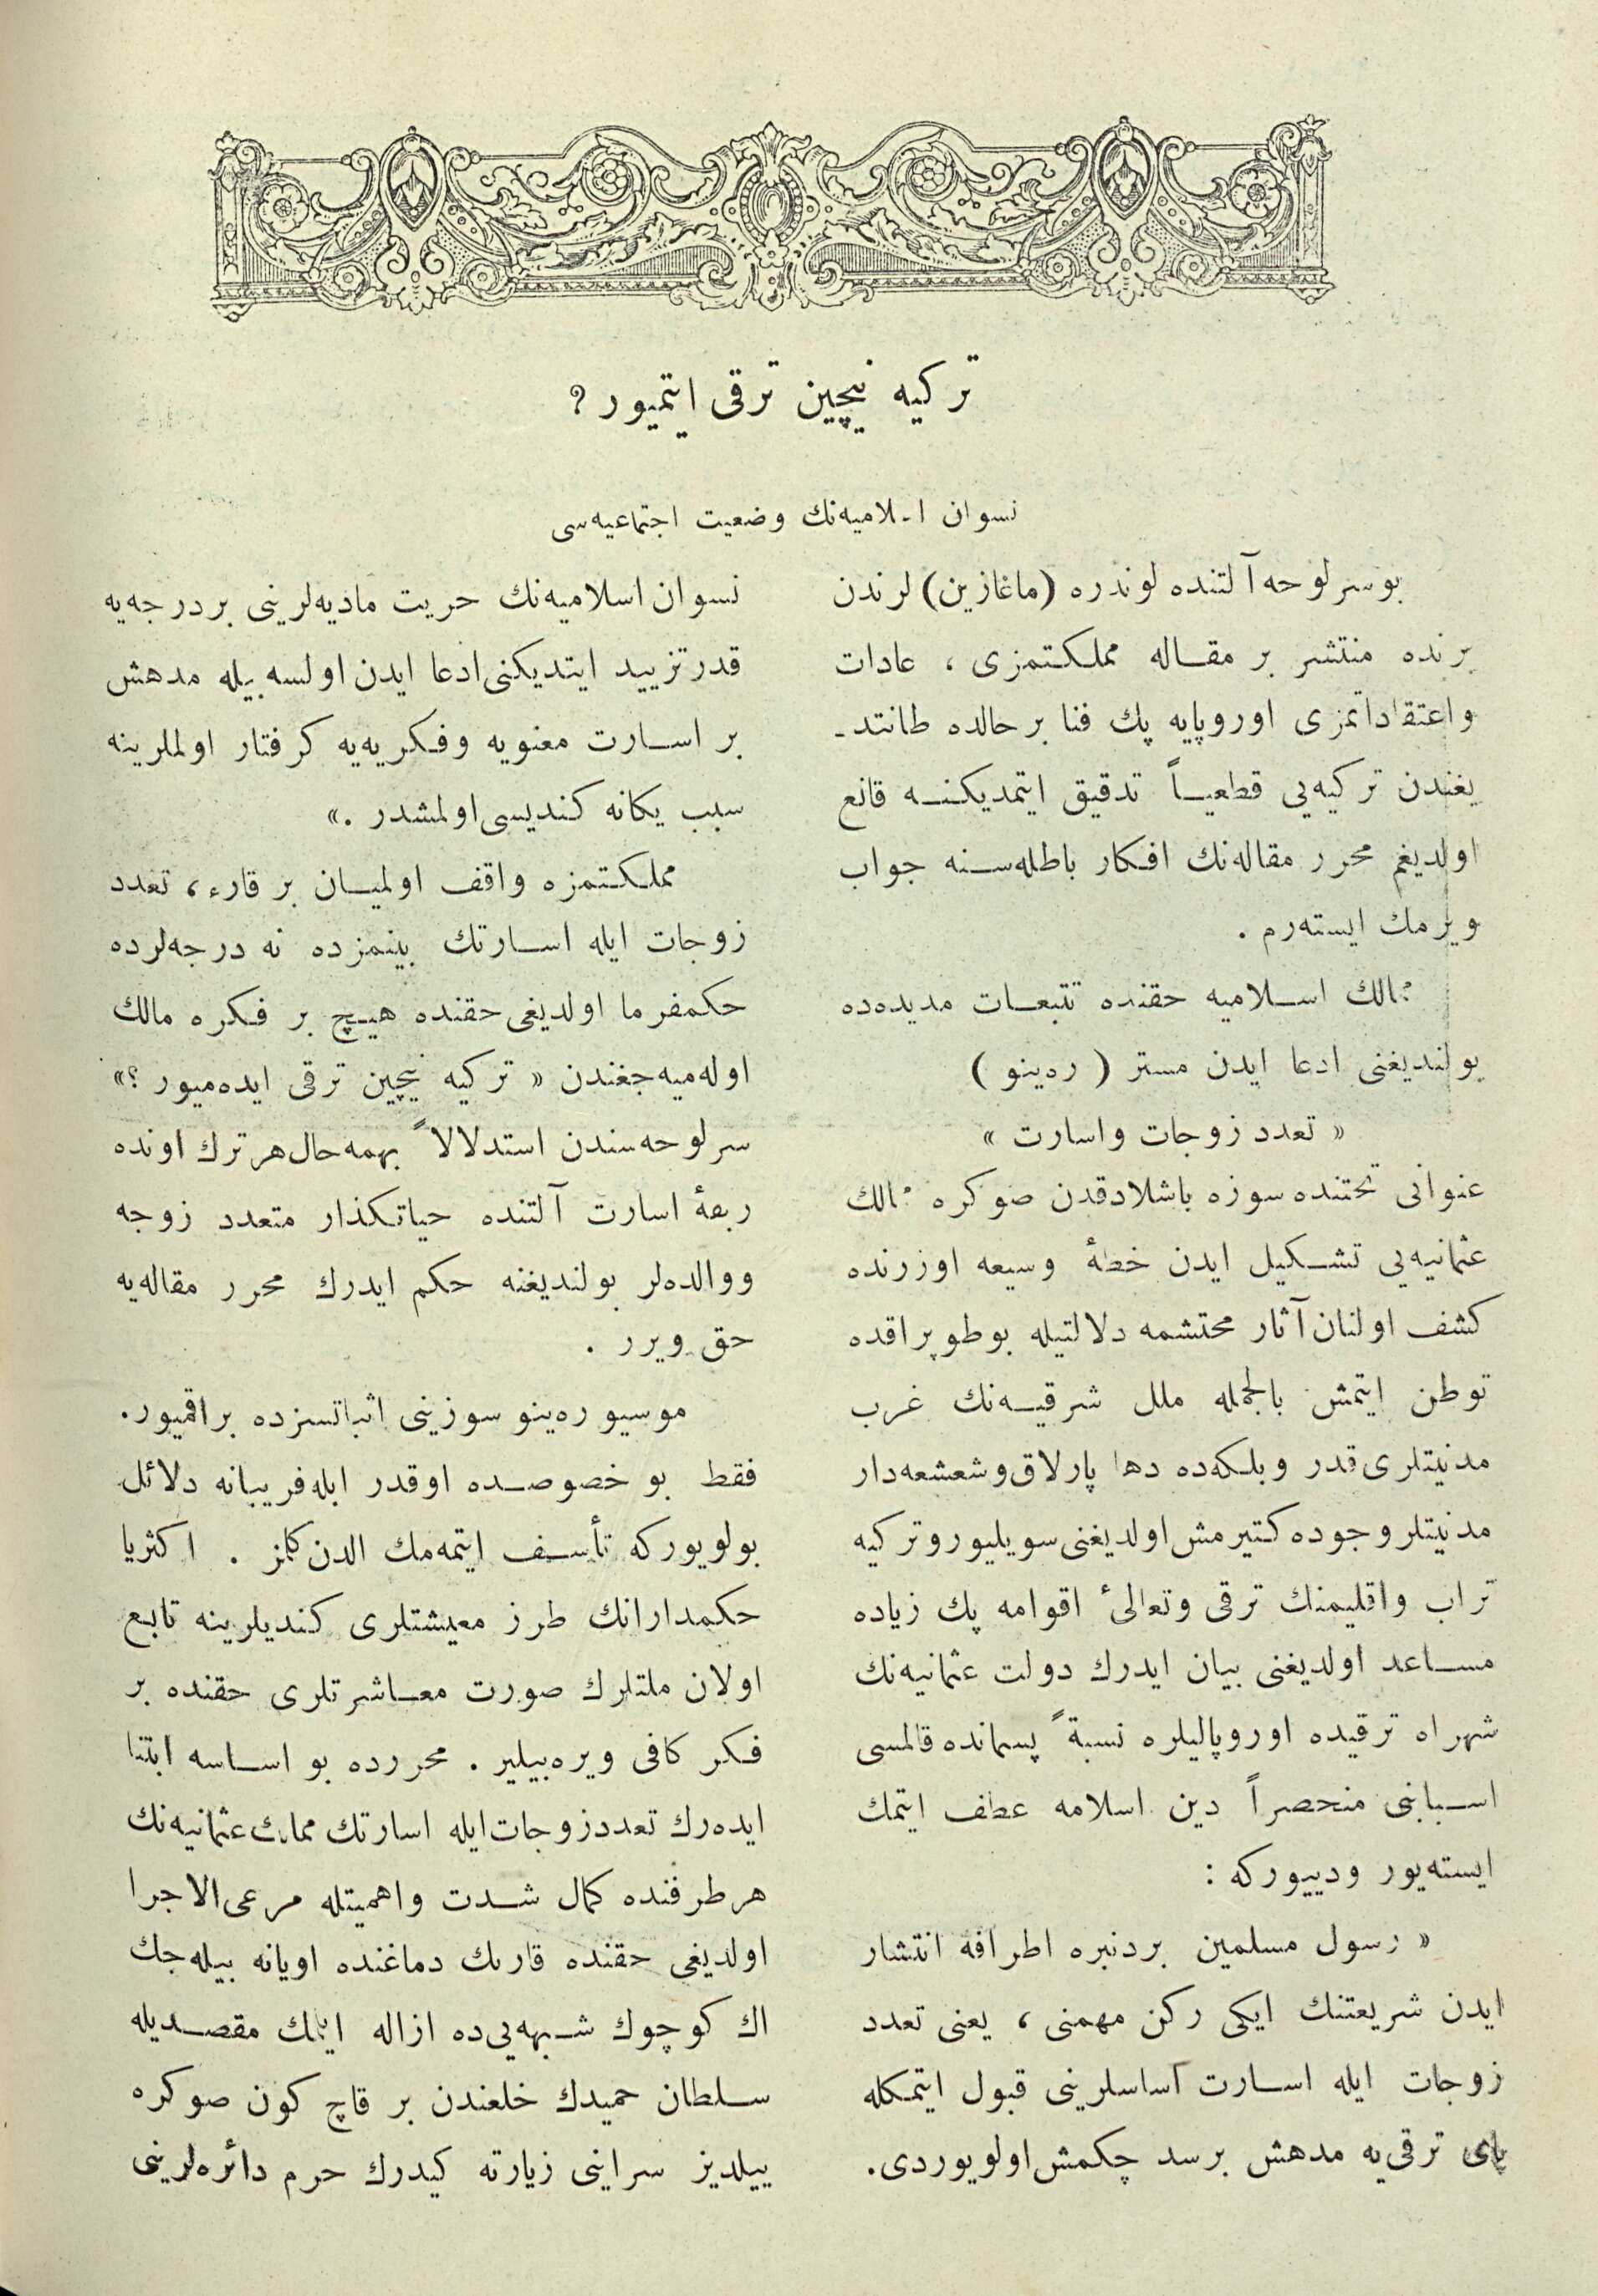 تركیه نیچین ترقی ایتمیور ؟
نسوان اسلامیه‌نك وضعیت اجتماعیه‌سی
بو سرلوحه آلتنده لوندره (ماغازین) لرندن
برنده منتشر بر مقاله مملكتمزی ، عادات
واعتقاداتمزی اوروپایه پك فنا برحالده طانتد-
یغندن تركیه‌یی قطعیاً تدقیق ایتمدیكنه قانع
اولدیغم محرر مقاله‌نك افكار باطله‌سنه جواب
ویرمك ایسته‌رم .
ممالك اسلامیه حقنده تتبعات مدیده‌ده
بولندیغنی ادعا ایدن مستر ( ره‌ینو )
« تعدد زوجات واسارت »
عنوانی تحتنده سوزه باشلادقدن صوكره ممالك
عثمانیه‌یی تشكیل ایدن خطهٔ وسیعه اوزرنده
كشف اولنان آثار محتشمه دلالتیله بو طوپراقده
توطن ایتمش بالجمله ملل شرقیه‌نك غرب
مدنیتلری قدر وبلكه‌ده دها پارلاق وشعشعه‌دار
مدنیتلر وجوده كتیرمش اولدیغنی سویلیور وتركیه
تراب واقلیمنك ترقی وتعالیٔ اقوامه پك زیاده
مساعد اولدیغنی بیان ایدرك دولت عثمانیه‌نك
شهراه ترقیده اوروپالیلره نسبةً پسمانده قالمسی
اسبابنی منحصراً دین اسلامه عطف ایتمك
ایسته‌یور ودییوركه :
« رسول مسلمین بردنبره اطرافه انتشار
ایدن شریعتنك ایكی ركن مهمنی ، یعنی تعدد
زوجات ایله اسارت اساسلرینی قبول ایتمكله
پای ترقی‌یه مدهش برسد چكمش اولویوردی.
نسوان اسلامیه‌نك حریت مادیه‌لرینی بر درجه‌یه
قدر تزیید ایتدیكنی ادعا ایدن اولسه بیله مدهش
بر اسارت معنویه وفكریه‌یه كرفتار اولملرینه
سبب یكانه كندیسی اولمشدر .»
مملكتمزه واقف اولمیان بر قارء ، تعدد
زوجات ایله اسارتك بینمزده نه درجه‌لرده
حكمفرما اولدیغی حقنده هیچ بر فكره مالك
اوله‌میه‌جغندن « تركیه نیچین ترقی ایده‌میور ؟»
سرلوحه‌سندن استدلالاً بهمه‌حال هر ترك اونده
ربقهٔ اسارت آلتنده حیاتكذار متعدد زوجه
ووالده‌لر بولندیغنه حكم ایدرك محرر مقاله‌یه
حق ویرر .
موسیو ره‌ینو سوزینی اثباتسزده براقمیور.
فقط بو خصوصده اوقدر ابله‌فریبانه دلائل
بولویوركه تأسف ایتمه‌مك الدن كلمز . اكثریا
حكمدارانك طرز معیشتلری كندیلرینه تابع
اولان ملتلرك صورت معاشرتلری حقنده بر
فكر كافی ویره‌بیلیر . محررده بو اساسه ابتنا
ایده‌رك تعدد زوجات ایله اسارتك ممالك عثمانیه‌نك
هر طرفنده كمال شدت واهمیتله مرعی‌الاجرا
اولدیغی حقنده قارئك دماغنده اویانه بیله‌جك
اك كوچوك شبهه‌یی‌ده ازاله ایتمك مقصدیله
سلطان حمیدك خلعندن بر قاچ كون صوكره
ییلدیز سراینی زیارته كیدرك حرم دائره‌لرینی